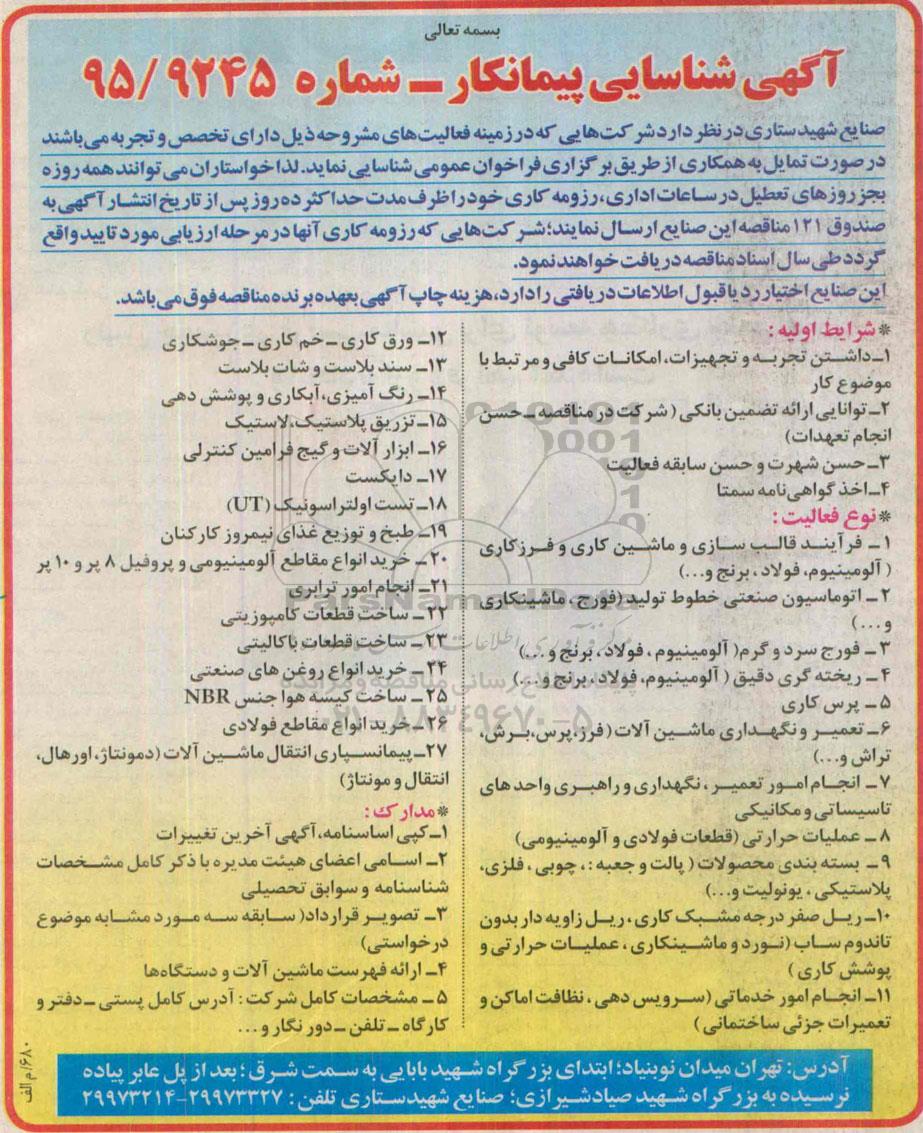 بسمه تعالی
آگهی شناسایی پیمانکار ـ شماره ۹۵/۹۲۴۵
صنایع شهید ستاری در نظر دارد شرکت‌هایی که در زمینه فعالیت‌های مشروحه ذیل دارای تخصص و تجربه می‌باشند
در صورت تمایل به همکاری از طریق برگزاری فراخوان عمومی شناسایی نماید. لذا خواستاران می‌توانند همه روزه
بجز روزهای تعطیل در ساعات اداری، رزومه کاری خود را ظرف مدت حداکثر ده روز پس از تاریخ انتشار آگهی به
صندوق ۱۲۱ مناقصه این صنایع ارسال نمایند؛ شرکت‌هایی که رزومه کاری آنها در مرحله ارزیابی مورد تایید واقع
گردد طی سال اسناد مناقصه دریافت خواهند نمود.
این صنایع اختیار رد یا قبول اطلاعات دریافتی را دارد، هزینه چاپ آگهی بعهده برنده مناقصه فوق می‌باشد.
*شرایط اولیه:
۱ـ داشتن تجربه و تجهیزات، امکانات کافی و مرتبط با
موضوع کار
۲ـ توانایی ارائه تضمین بانکی (شرکت در مناقصه ـ حسن
انجام تعهدات)
۳ـ حسن شهرت و حسن سابقه فعالیت
۴ـ اخذ گواهی‌نامه سمتا
*نوع فعالیت:
۱ـ فرآیند قالب سازی و ماشین کاری و فرزکاری
(آلومینیوم، فولاد، برنج و...)
۲ـ اتوماسیون صنعتی خطوط تولید (فورج، ماشینکاری
و...)
۳ـ فورج سرد و گرم (آلومینیوم، فولاد، برنج و...)
۴ـ ریخته گری دقیق (آلومینیوم، فولاد، برنج و...)
۵ـ پرس کاری
۶ـ تعمیر و نگهداری ماشین آلات (فرز، پرس، برش،
تراش و...)
۷ـ انجام امور تعمیر، نگهداری و راهبری واحدهای
تاسیساتی و مکانیکی
۸ـ عملیات حرارتی (قطعات فولادی و آلومینیومی)
۹ـ بسته بندی محصولات (پالت و جعبه:، چوبی، فلزی،
پلاستیکی، یونولیت و...)
۱۰ـ ریل صفر درجه مشبک کاری، ریل زاویه دار بدون
تاندوم ساب (نورد و ماشینکاری، عملیات حرارتی و
پوشش کاری)
۱۱ـ انجام امور خدماتی (سرویس دهی، نظافت اماکن و
تعمیرات جزئی ساختمانی)
۱۲ـ ورق کاری ـ خم کاری ـ جوشکاری
۱۳ـ سند بلاست و شات بلاست
۱۴ـ رنگ آمیزی، آبکاری و پوشش دهی
۱۵ـ تزریق پلاستیک، لاستیک
۱۶ـ ابزار آلات و گیج فرامین کنترلی
۱۷ـ دایکست
۱۸ـ تست اولتراسونیک (UT)
۱۹ـ طبخ و توزیع غذای نیمروز کارکنان
۲۰ـ خرید انواع مقاطع آلومینیومی و پروفیل ۸ پر و ۱۰ پر
۲۱ـ انجام امور ترابری
۲۲ـ ساخت قطعات کامپوزیتی
۲۳ـ ساخت قطعات باکالیتی
۲۴ـ خرید انواع روغن های صنعتی
۲۵ـ ساخت کیسه هوا جنس NBR
۲۶ـ خرید انواع مقاطع فولادی
۲۷ـ پیمانسپاری انتقال ماشین آلات (دمونتاژ، اورهال،
انتقال و مونتاژ)
*مدارک:
۱ـ کپی اساسنامه، آگهی آخرین تغییرات
۲ـ اسامی اعضای هیئت مدیره با ذکر کامل مشخصات
شناسنامه و سوابق تحصیلی
۳ـ تصویر قرارداد (سابقه سه مورد مشابه موضوع
درخواستی)
۴ـ ارائه فهرست ماشین آلات و دستگاه‌ها
۵ـ مشخصات کامل شرکت: آدرس کامل پستی ـ دفتر و
کارگاه ـ تلفن ـ دورنگار و...
آدرس: تهران میدان نوبنیاد؛ ابتدای بزرگراه شهید بابایی به سمت شرق؛ بعد از پل عابر پیاده
نرسیده به بزرگراه شهید صیاد شیرازی؛ صنایع شهید ستاری تلفن: ۲۹۹۷۳۳۲۷-۲۹۹۷۳۲۱۴
۰۶۸۰/م الف
ParsNamadData
۰۲۱-۸۸۳۴۹۶۷۰-۵